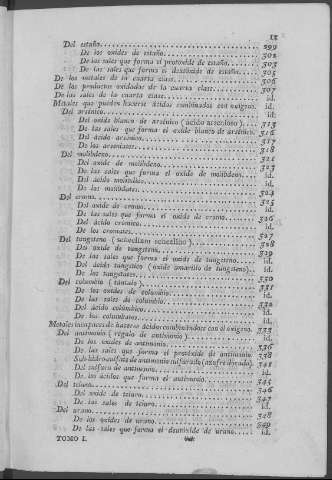 IX
Del estaño. 299
De los oxides de estaño. 302
De las sales que forma el protóxide de estaño. 303
De las sales que forma el deutóxide de estaño. 305
De los metales de la cuarta clase. 306
De los productos oxidados de la cuarta clase. 307
De las sales de la cuarta clase. id.
Metales que pueden hacerse ácidos combinados con oxígeno. id.
Del arsénico. id.
Del oxide blanco de arsénico (ácido arsenioso). 313
De las sales que forma el oxide blanco de arsénico. 316
Del ácido arsénico. 317
De los arseniatos. 318
Del molibdeno. 321
Del oxide de molibdeno. 323
De las sales que forma el oxide de molibdeno. id.
Del ácido molíbdico. id.
De los molibdates. 324
Del cromo. 325
Del oxide de cromo. id.
De las sales que forma el oxide de cromo. 326
Del ácido crómico. id.
De los cromates. 327
Del tungsteno 328
Del oxide de tungsteno. 329
De las sales que forma el oxide de tungsteno. id.
Del ácido tungstico (oxide amarillo de tungsteno). id.
De los tungstates. 330
Del colombio (tántalo). 331
De los oxides de colombio. id.
De las sales de colombio. id.
Del ácido colómbico. 332
De los colombates. id.
Metales incapaces de hacerse ácidos combinándose con el oxígeno. 333
Del antimonio (régulo de antimonio). id.
De los oxides de antimonio. 336
De las sales que forma el protóxide de antimonio. 338
Subhidrosulfato de antimonio sulfurado (azufre dorado). 341
Del sulfuro de antimonio. id.
De los ácidos que forma el antimonio. 345
Del teluro. 346
Del oxide de teluro. 347
De las sales de teluro. id.
Del urano. 348
De los oxides de urano. 349
De las sales que forma el deutóxide de urano. id.
TOMO I.